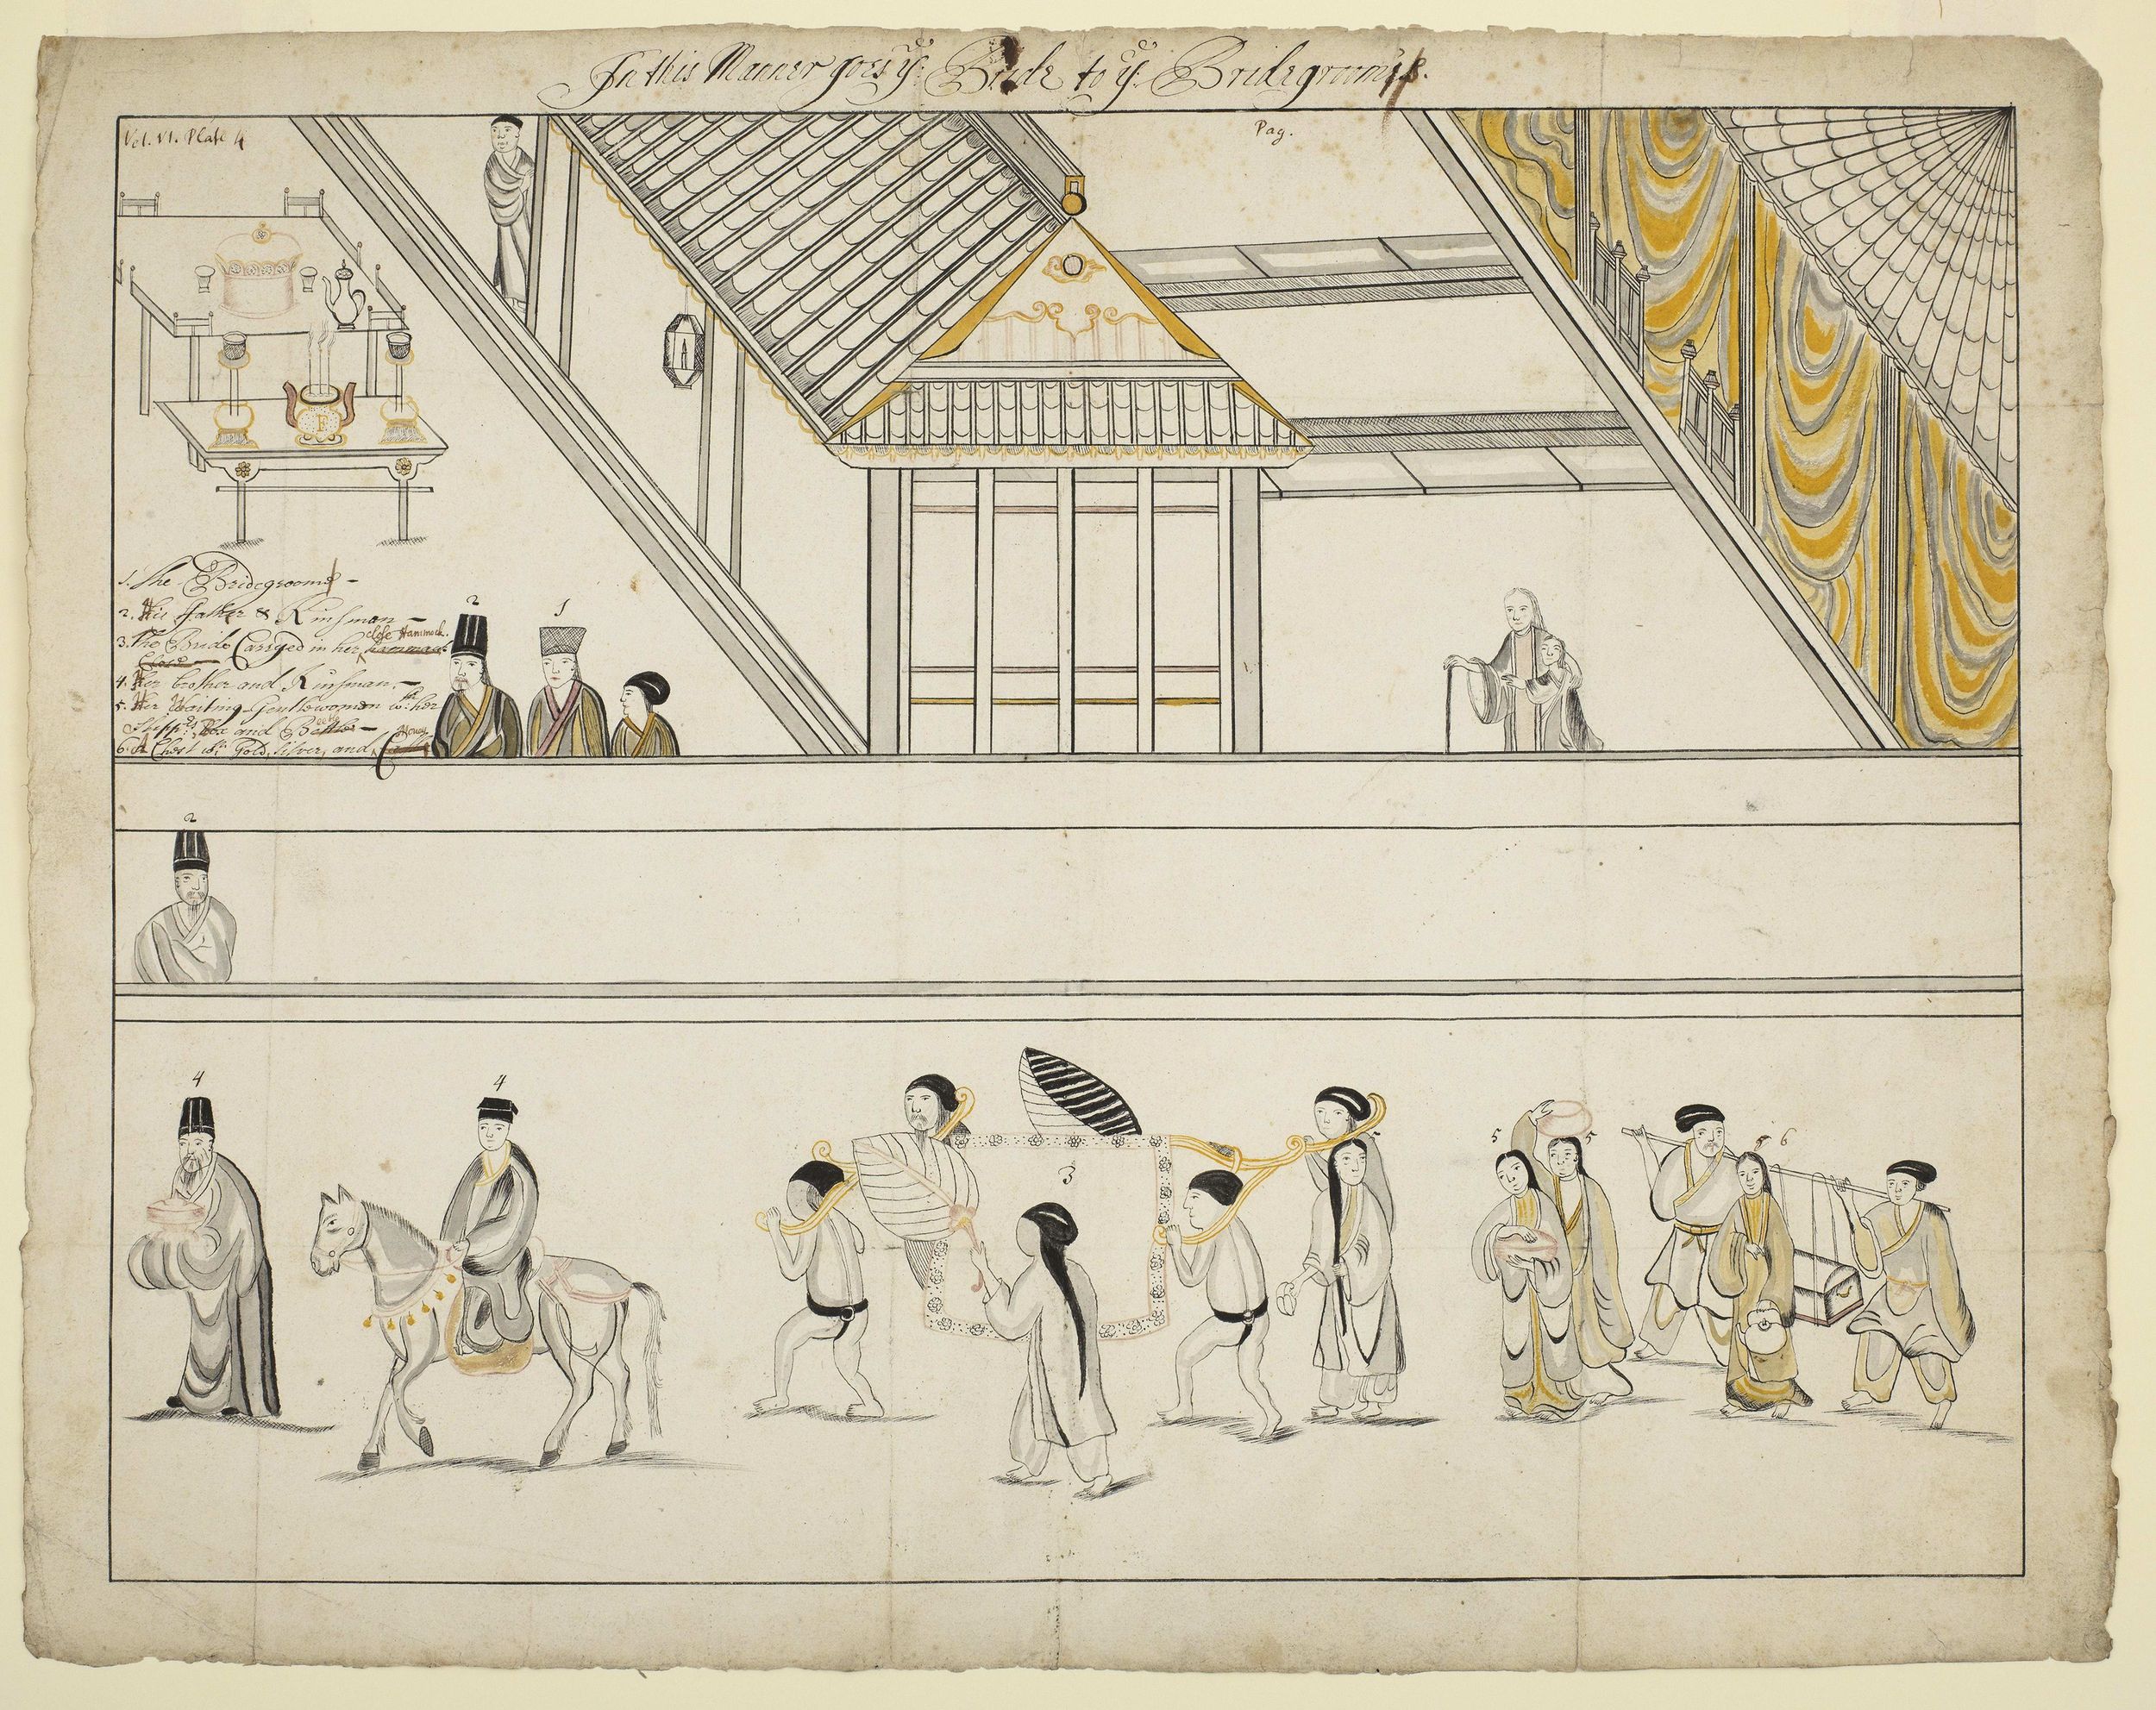 In this Manner goes yͤ: Bride to yͤ: Bridegroom's.
Vol. VI. Plate 4
Pag.
F
1. The Bridegroome -
2. His father & Kinsman -
close Hammock.
3. The Bride Carryed in her hammack
Close
4. Her brother and Kinsman. -
5. Her Waiting Gentlewomen wth her
Slipprs, Box and Beetle -
Howes
6. A Chest wth Gold, Silver, and
2
1
2
4
4
3
5
5
5
6